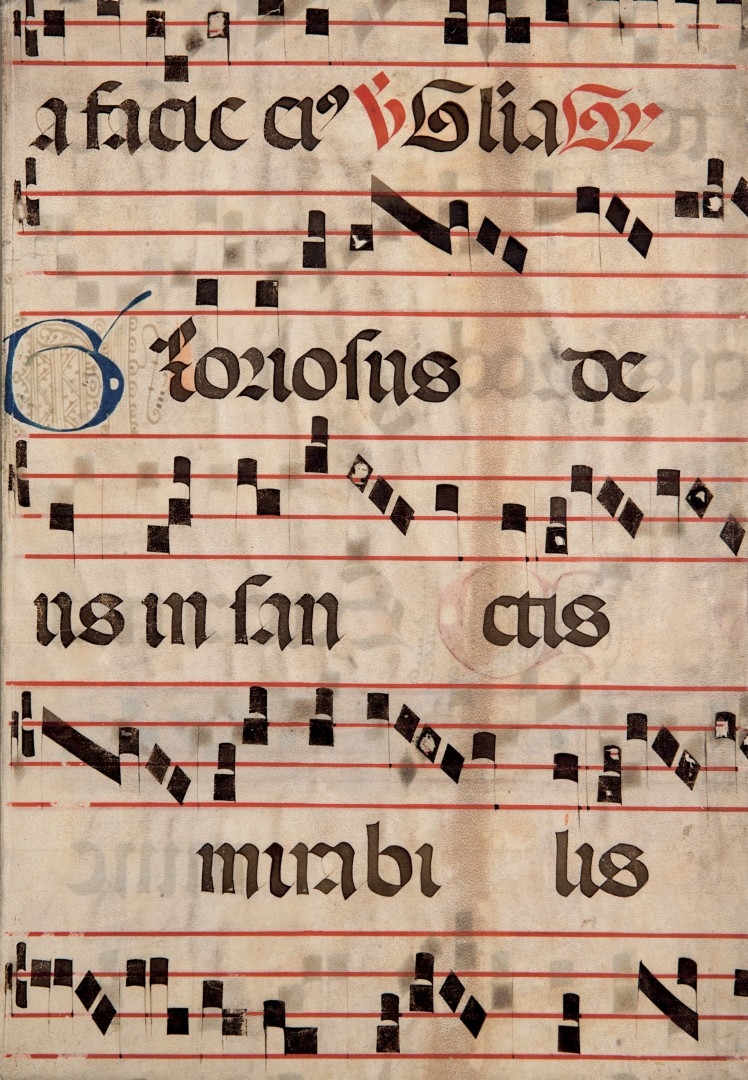 a facie ei⁹ ℣ Glia Gr
Gloriosus de
us in san ctis
mirabi lis